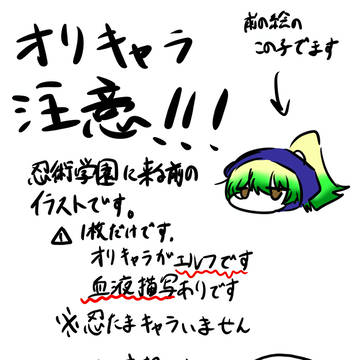 オリキャラ
注意!!!
前の絵の
この子でます
忍術学園に来る前の
イラストです。
⚠1枚だけです.
オリキャラがエルフです
血液描写ありです
※忍たまキャラいません